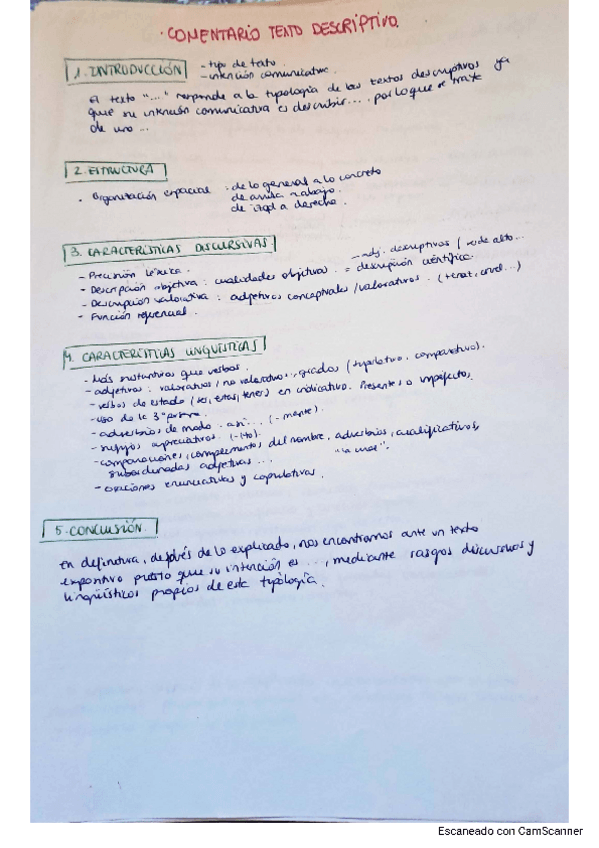 · COMENTARIO TEXTO DESCRIPTIVO
1. INTRODUCCIÓN - tipo de texto.
- intención comunicativa.
El texto "..." responde a la tipología de los textos descriptivos ya
que su intención comunicativa es describir... por lo que se trata
de uno ...
2. ESTRUCTURA
· Organización espacial : de lo general a lo concreto
de arriba a abajo.
de izqd a derecha.
3. CARACTERÍSTICAS DISCURSIVAS
- Precisión léxica.
- adj. descriptivos ( alto...
- Descripción objetiva : cualidades objetivas = descripción científica.
- Descripción valorativa : adjetivos conceptuales / valorativos. (
- Función referencial.
4. CARACTERÍSTICAS LINGÜÍSTICAS
- Más sustantivos que verbos.
- adjetivos : valorativos / no valorativos, grados (superlativo, comparativo).
- verbos de estado (ser, estar, tener) en indicativo. Presente o imperfecto.
- uso de la 3ª persona.
- adverbios de modo - así... (-mente).
- sufijos apreciativos (-ito).
- comparaciones, complementos del nombre, adverbios, cualificativos,
subordinadas adjetivas ...
- oraciones enunciativas y copulativas.
5. CONCLUSIÓN.
En definitiva, después de lo explicado, nos encontramos ante un texto
expositivo puesto que su intención es ..., mediante rasgos discursivos y
lingüísticos propios de esta tipología.
Escaneado con CamScanner